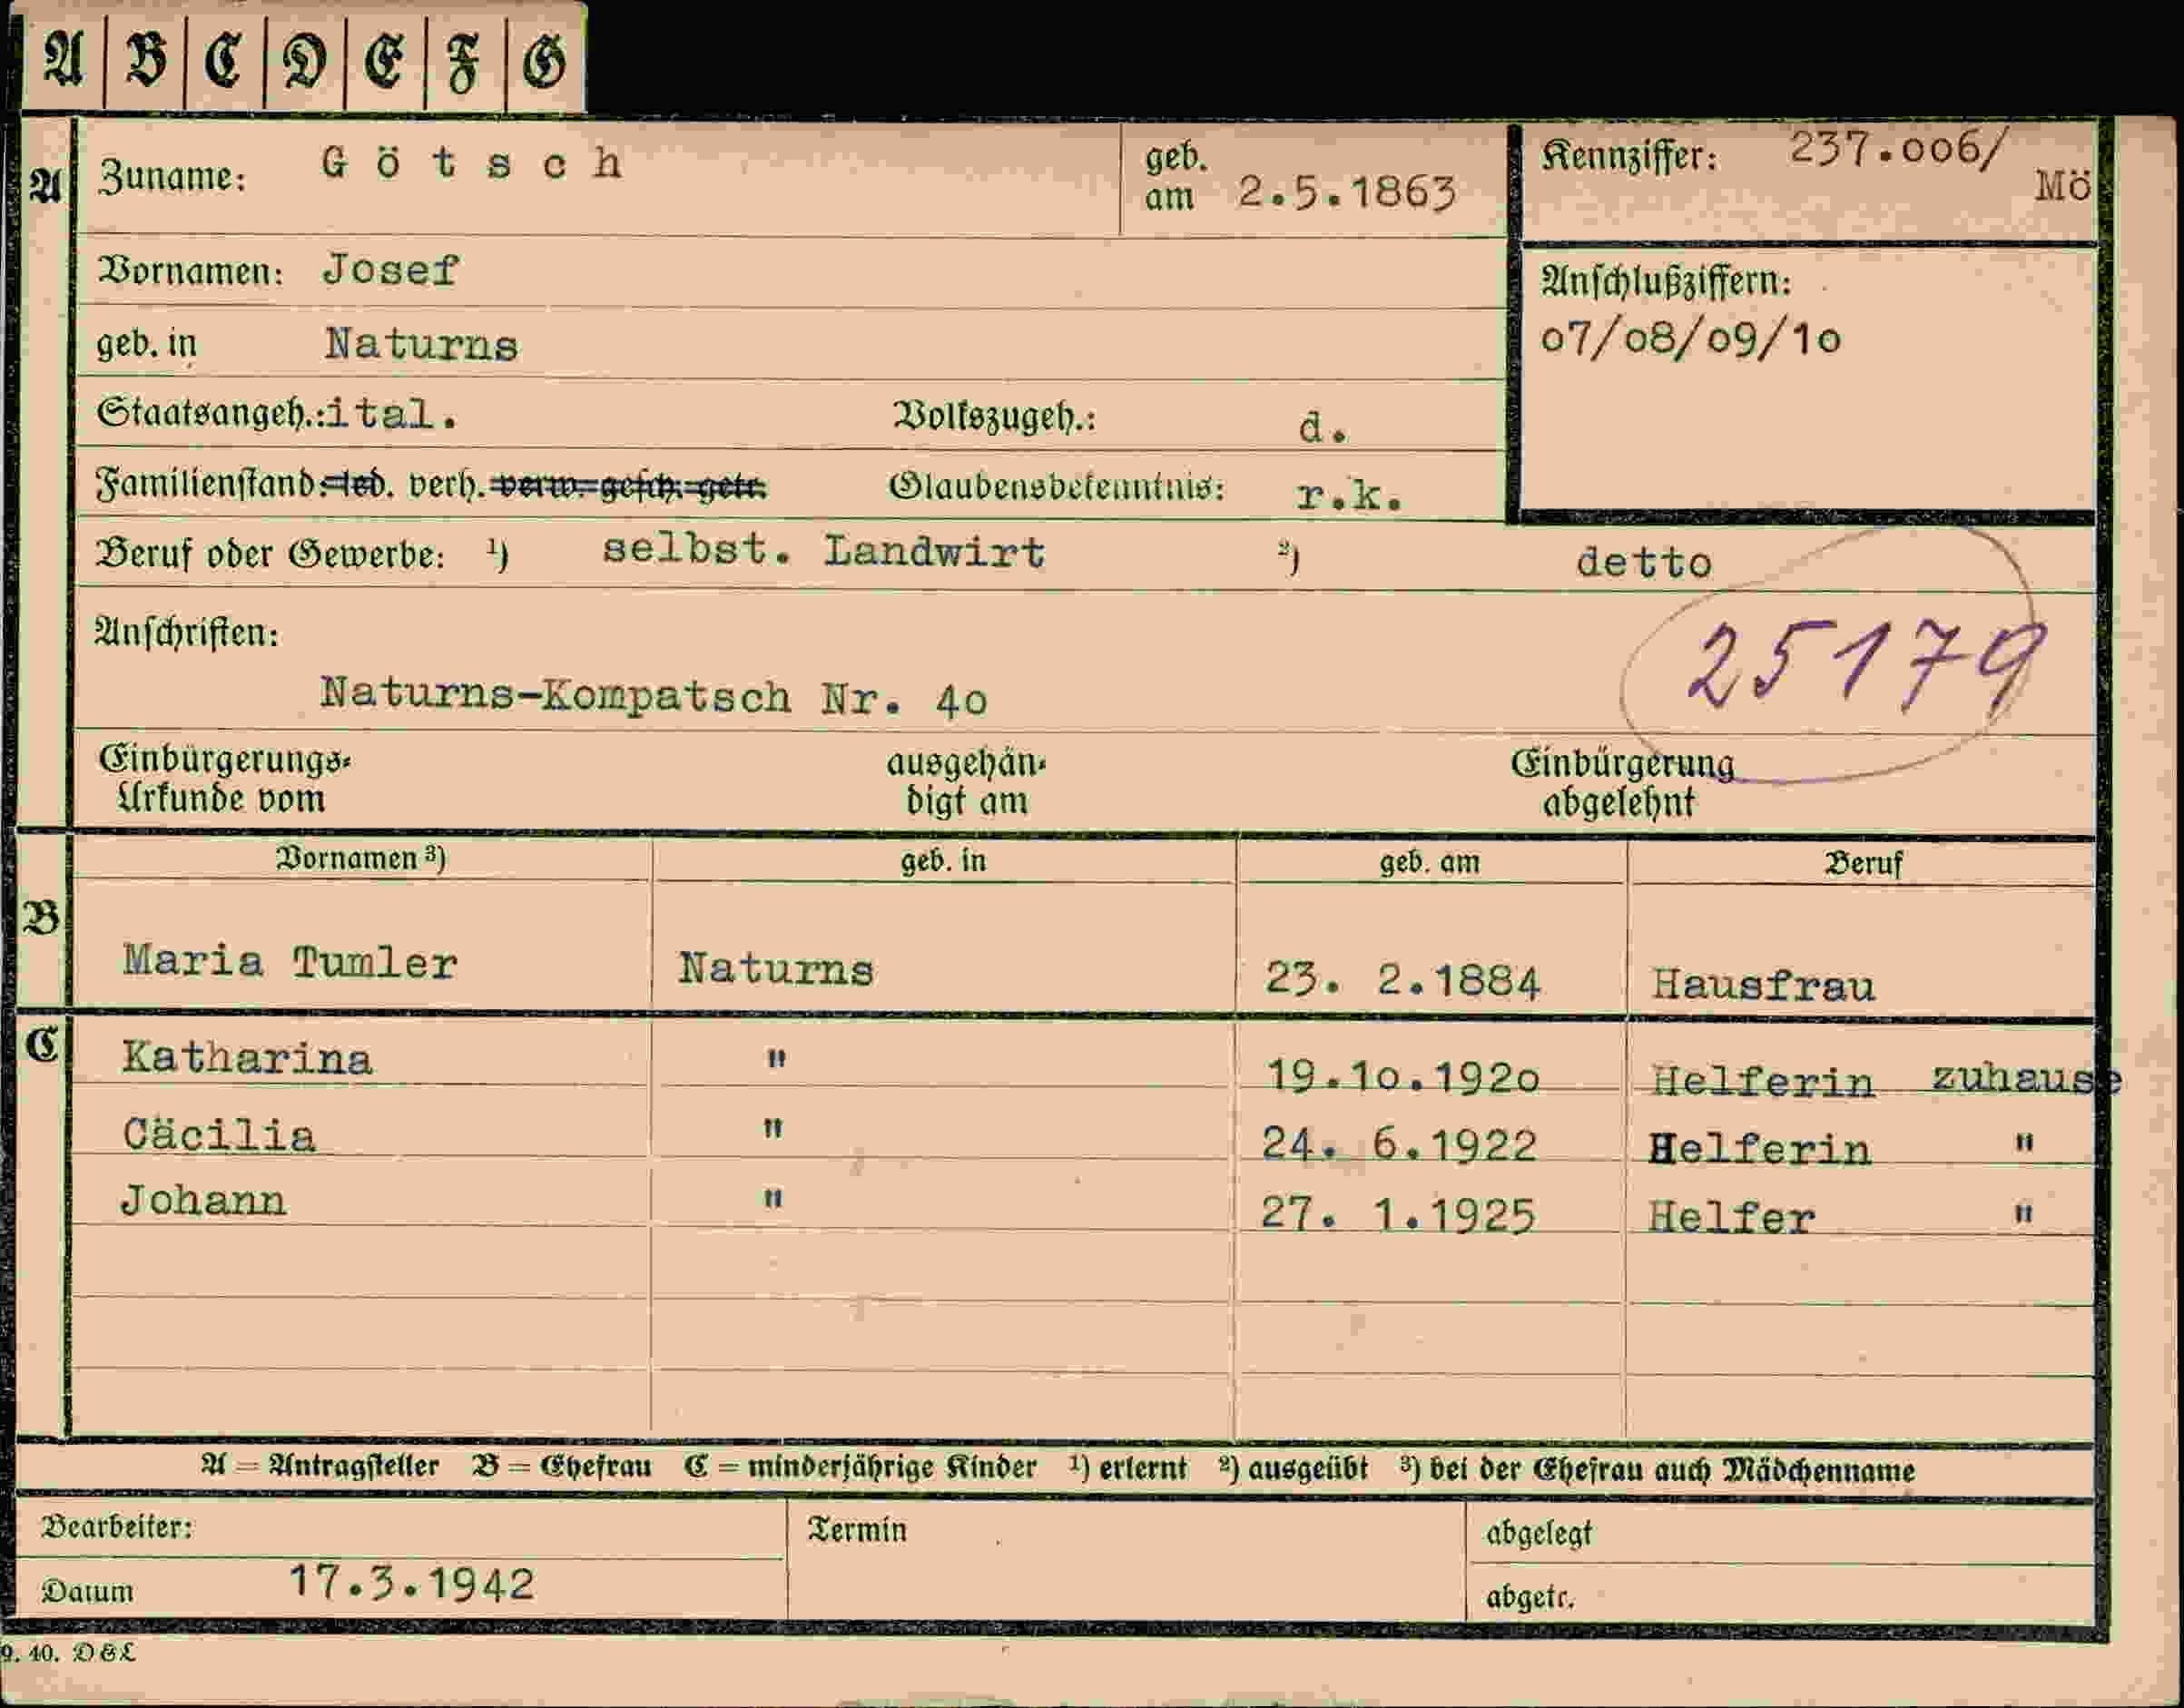 A B C D E F G
A Zuname: Götsch geb. am 2.5.1863 Kennziffer: 237.006/ Mö
Vornamen: Josef Anschlußziffern:
07/08/09/10
geb. in Naturns
Staatsangeh.: ital. Volkszugeh.: d.
Familienstand: led. verh. verw. gesch. getr. Glaubensbekenntnis: r.k.
Beruf oder Gewerbe: ¹) selbst. Landwirt ²) detto
Anschriften: 25179
Naturns-Kompatsch Nr. 40
Einbürgerungs- ausgehän- Einbürgerung
Urkunde vom digt am abgelehnt
Vornamen ³) geb. in geb. am Beruf
B
Maria Tumler Naturns 23. 2.1884 Hausfrau
C Katharina " 19.10.1920 Helferin zuhause
Cäcilia " 24. 6.1922 Helferin "
Johann " 27. 1.1925 Helfer "
A = Antragsteller B = Ehefrau C = minderjährige Kinder ¹) erlernt ²) ausgeübt ³) bei der Ehefrau auch Mädchenname
Bearbeiter: Termin abgelegt
Datum 17.3.1942 abgetr.
9. 40. D&L